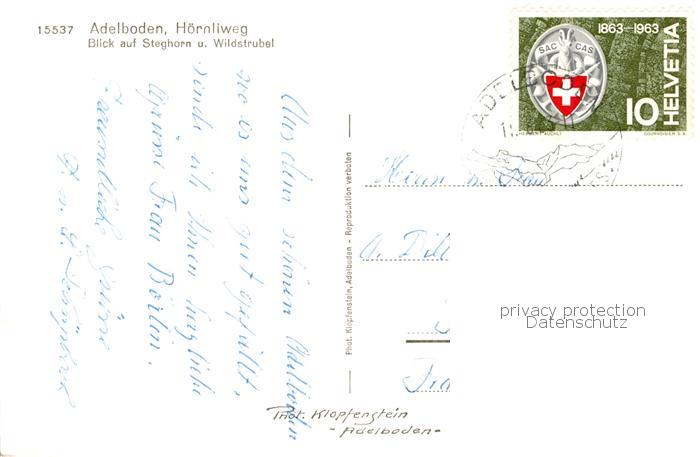 15537 Adelboden, Hörnliweg
Blick auf Steghorn u. Wildstrubel
1863-1963
SAC CAS
HELVETIA
10
COURVOISIER S.A.
ADELBODEN
Aus dem schönen Adelboden
wo es uns gut gefällt,
sende ich Ihnen herzliche
Grüsse Frau Börlin.
Freundliche Grüsse
Phot. Klopfenstein, Adelboden - Reproduktion verboten
Herrn u. Frau
A. Dill
privacy protection
Datenschutz
Phot. Klopfenstein
- Adelboden -